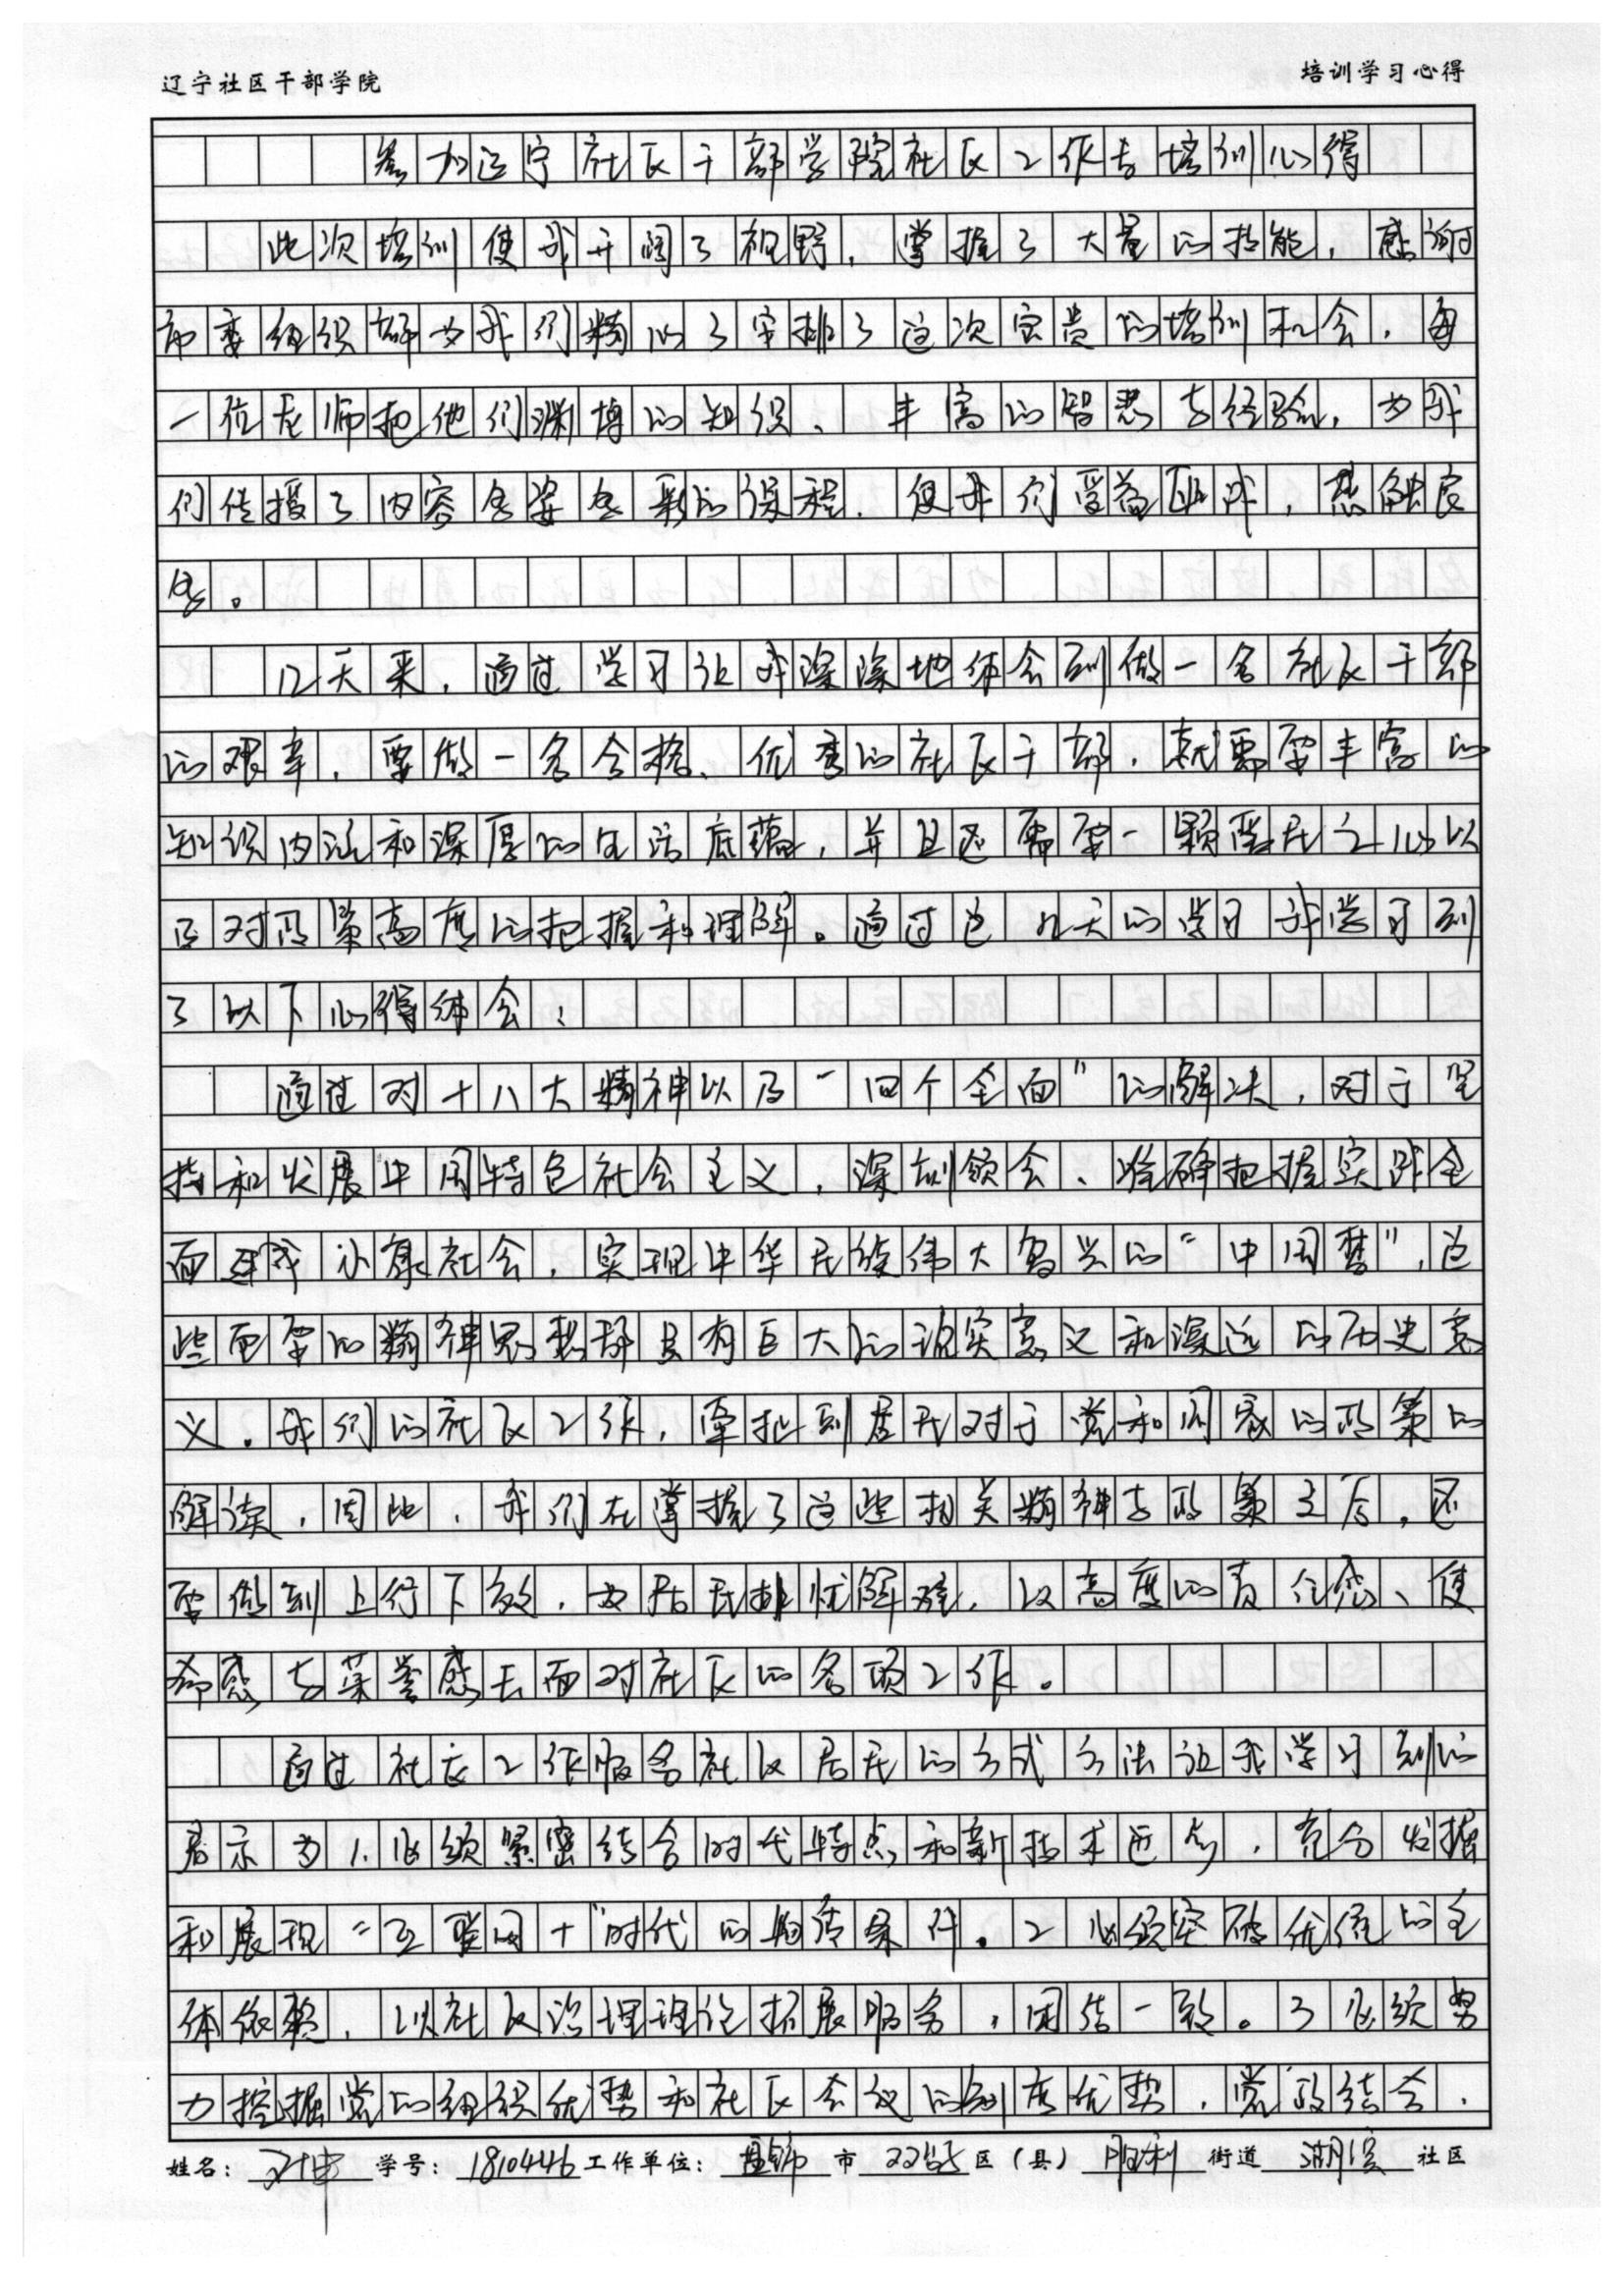 辽宁社区干部学院
培训学习心得
参加辽宁社区干部学院社区工作者培训心得
此次培训使我开阔了视野，掌握了大量的技能，感谢
市委组织部为我们精心了安排了这次宝贵的培训机会，每
一位老师把他们渊博的知识、丰富的智慧与经验，为我
们传授了内容多姿多彩的课程，使我们受益匪浅，感触良
多。
几天来，通过学习让我深深地体会到做一名社区干部
的艰辛，要做一名合格、优秀的社区干部，就需要丰富的
知识内涵和深厚的生活底蕴，并且还需要一颗爱民之心以
及对政策高度的把握和理解。通过这几天的学习我学习到
了以下心得体会：
通过对十八大精神以及“四个全面”的解决，对于坚
持和发展中国特色社会主义，深刻领会、准确把握实践全
面建成小康社会，实现中华民族伟大复兴的“中国梦”，这
些重要的精神思想都具有巨大的现实意义和深远的历史意
义。我们的社区工作，牵扯到居民对于党和国家的政策的
解读，因此，我们在掌握了这些相关精神与政策之后，还
要做到上行下效，为居民排忧解难，以高度的责任感、使
命感与荣誉感去面对社区的各项工作。
通过社区工作服务社区居民的方式方法让我学习到的
启示为1.必须紧密结合时代特点和新技术近况，充分发掘
和展现“互联网+”时代的物质条件。2必须突破优偓的主
体依赖，以社区治理理论拓展服务，团结一致。3必须努
力挖掘党的组织优势和社区会议的制度优势，党政结合，
姓名： 学号：1810446 工作单位：盘锦 市 双台子 区（县） 胜利 街道 湖滨 社区